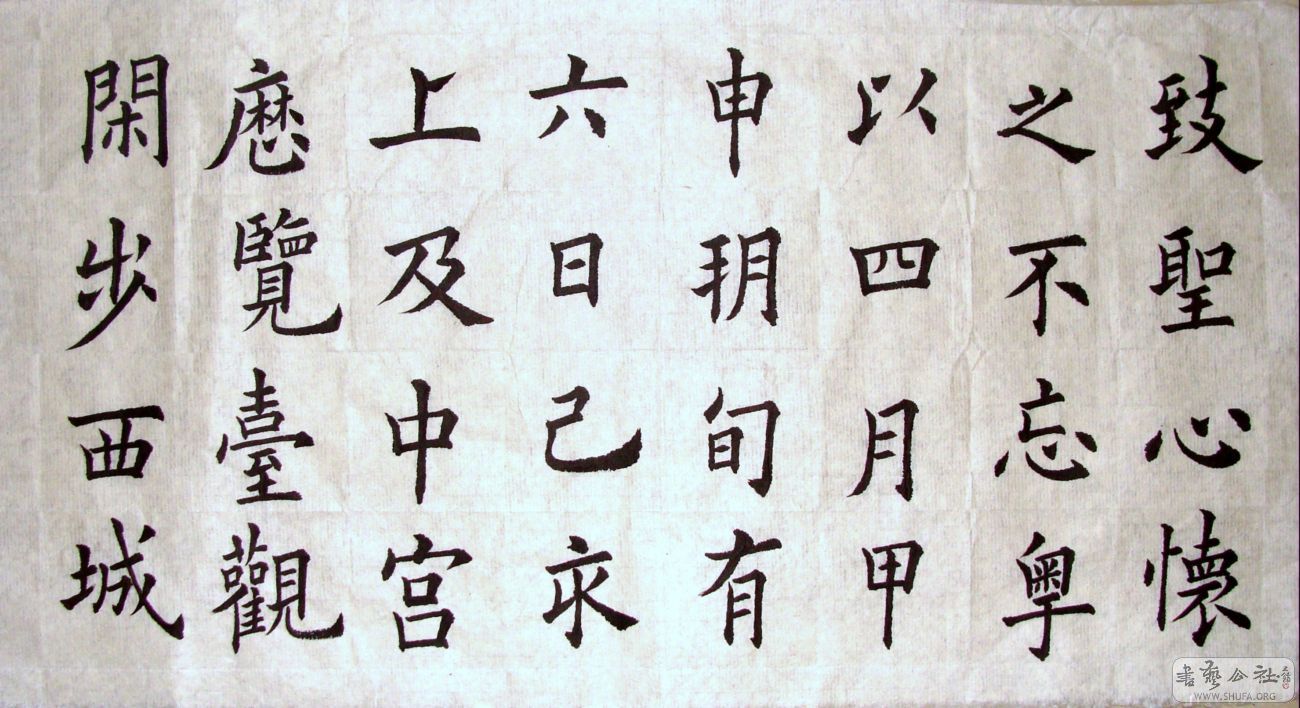 致聖心懷
之不忘粵
以四月甲
申朔旬有
六日己亥
上及中宮
歷覽臺觀
閑步西城
書藝公社
WWW.SHUFA.ORG